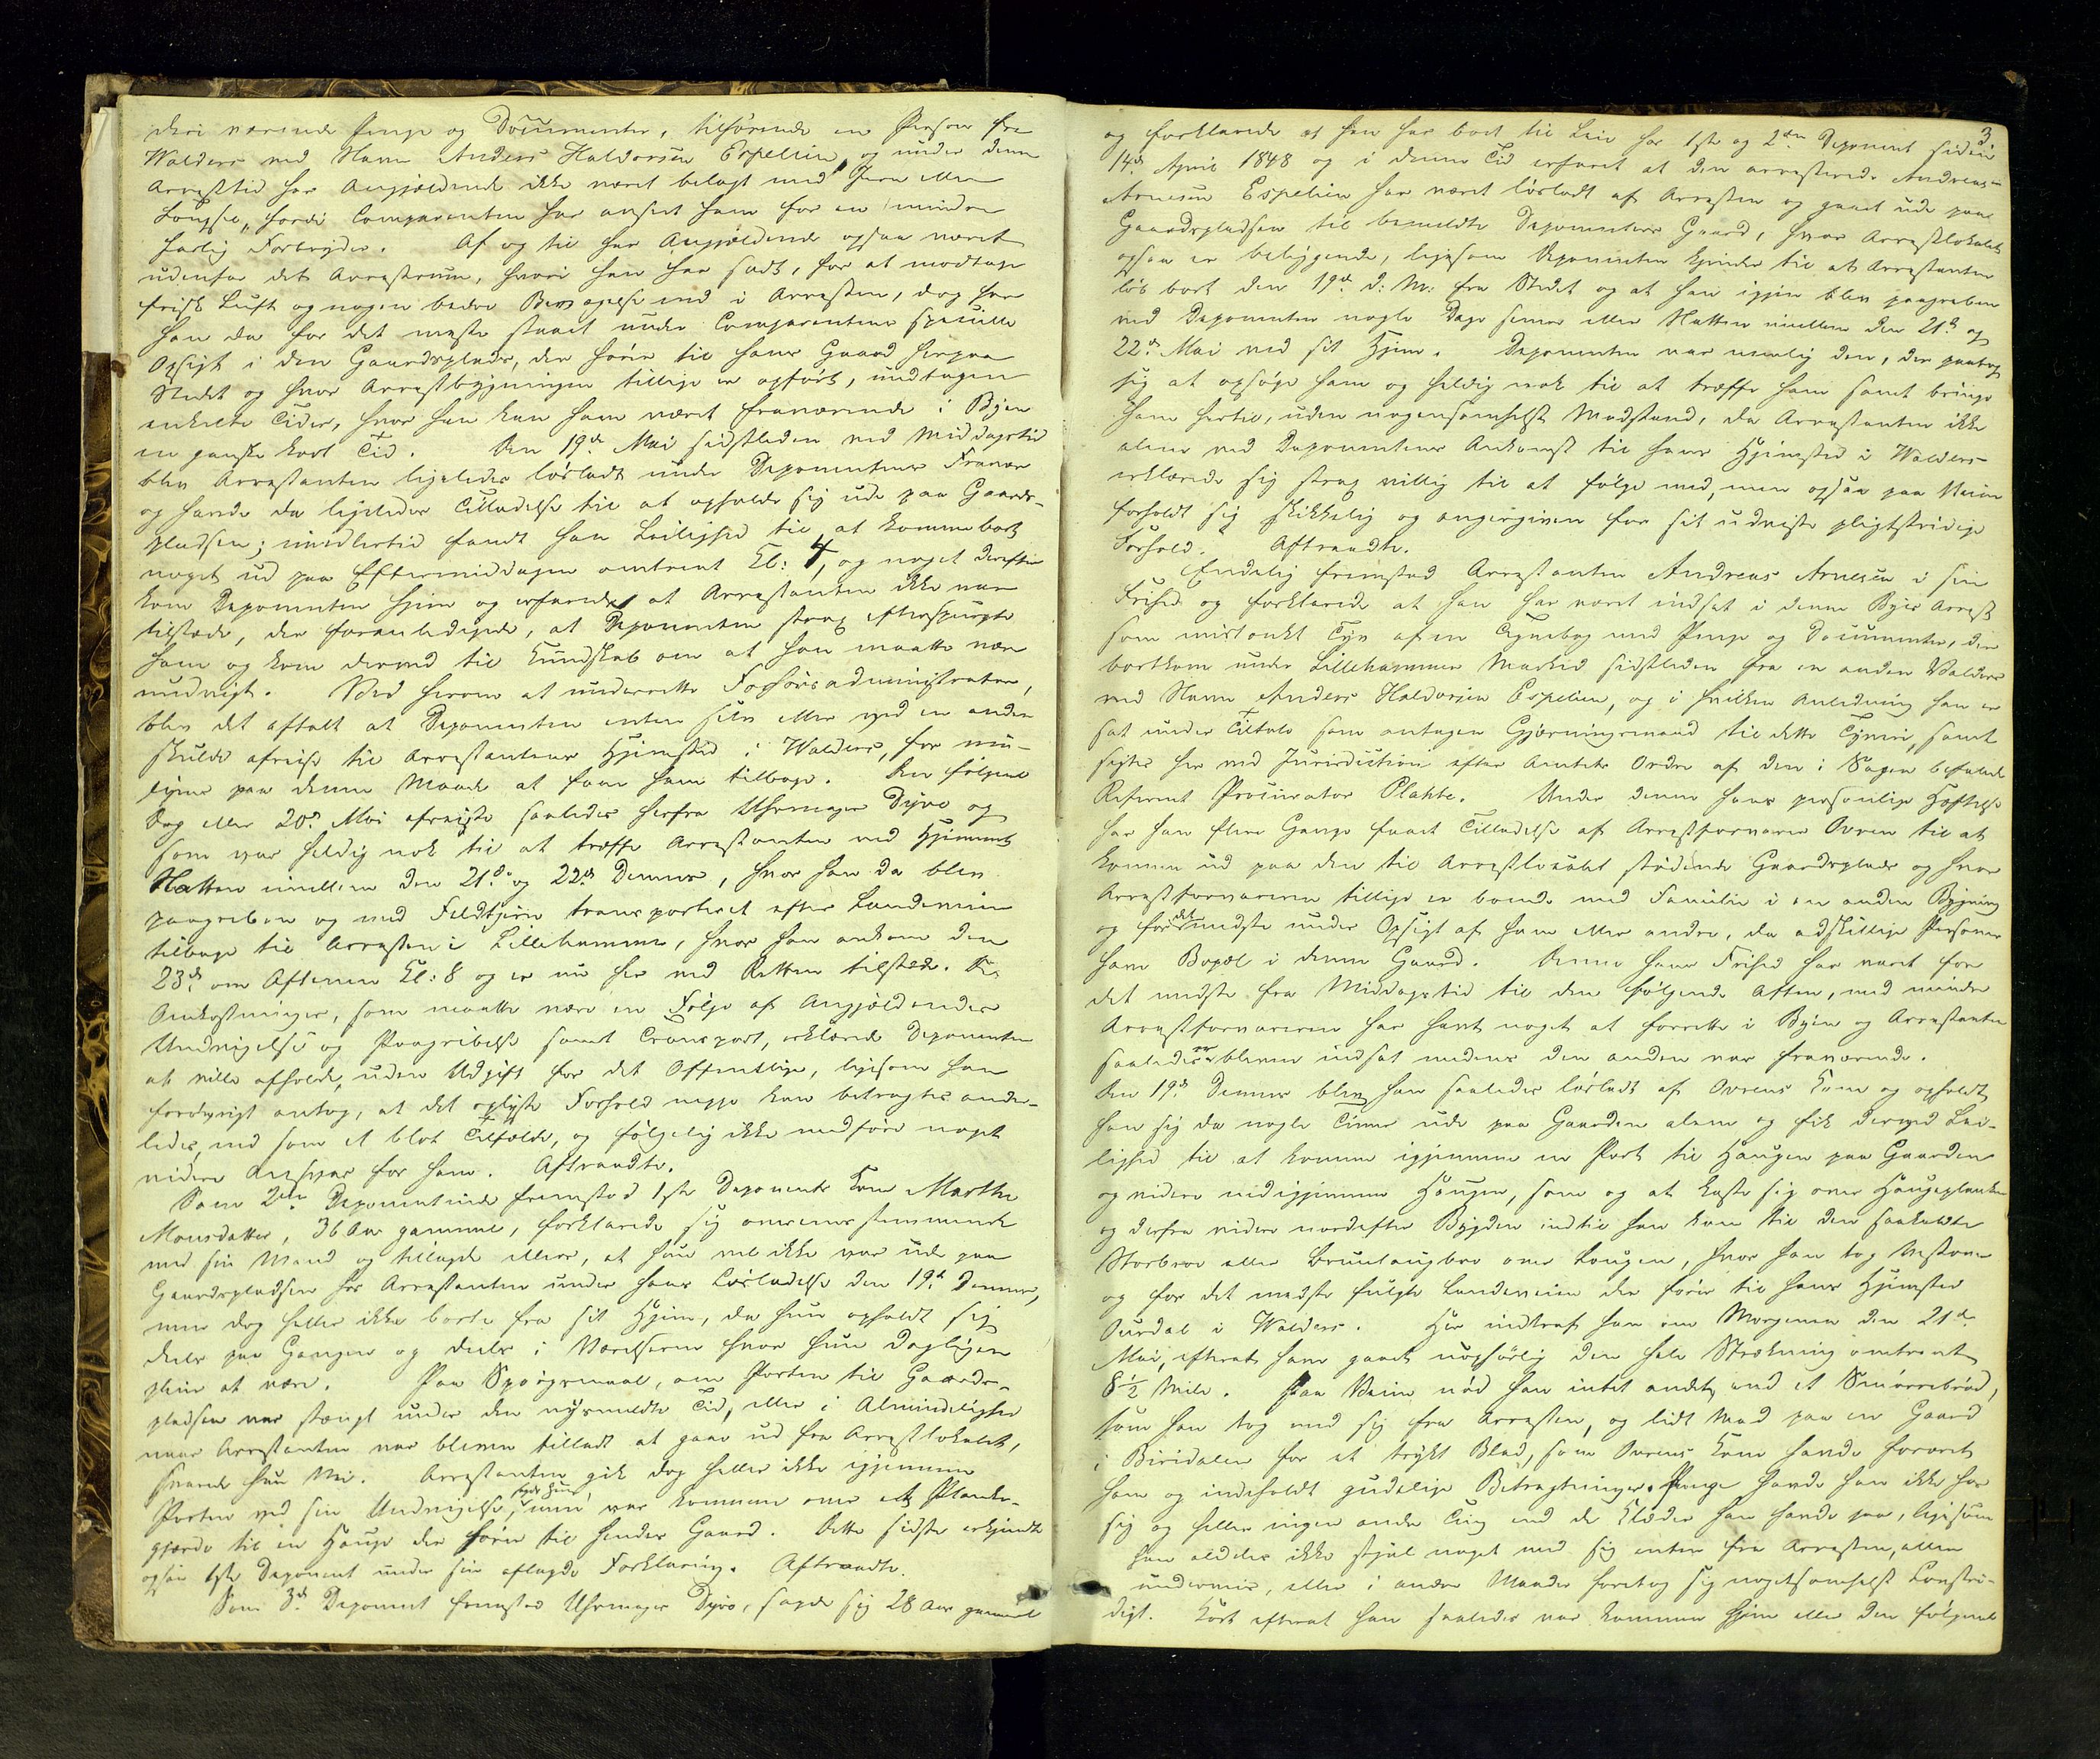 deri værende Penge og Documenter, tilhørende en Person fra
Walders ved Navn Anders Haldorsen Espelien, og under denne
Arresttid har Angjældende ikke været belagt med Jern eller
Bolt, fordi Comparenten har anseet ham for en mindre
farlig Forbryder. Af og til har Angjældende ogsaa været
udenfor det Arrestrum, hvori han har sadt, for at modtage
frisk Luft og nogen bedre Bevægelse end i Arresten, dog har
han da for det meste staaet under Comparentens specielle
Opsigt i den Gaardsplads, der hører til hans Gaard herpaa
Stedet og hvor Arrestbygningen tillige er opført, undtagen
enkelte Tider, hvor han kan have været fraværende i Byen
en ganske kort Tid. Den 19de Mai sidstleden ved Middagstid
blev Arrestanten ligeledes løsladt under Deponentens Fravær
og havde da ligeledes Tilladelse til at opholde sig ude paa Gaards-
pladsen; imidlertid fandt han Leilighed til at komme bort
noget ud paa Eftermiddagen omtrent Kl: 4, og noget derefter
kom Deponenten hjem og erfarede at Arrestanten ikke var
tilstæde, der foranledigede, at Deponenten strax efterspurgte
ham og kom derved til Kundskab om at han maatte være
undvigt. Ved herom at underrette Forhørsadministrator,
blev det aftalt at Deponenten enten selv eller ved en anden
skulde afreise til Arrestantens Hjemsted i Walders, for mu-
ligens paa denne Maade at faae ham tilbage. Den følgende
Dag eller 20de Mai afreiste saaledes herfra Uhrmager Dyre og
som var heldig nok til at træffe Arrestanten ved Hjemmet
Natten imellem den 21de og 22de Dennes, hvor han da blev
paagreben og med Feldtjern transporteret efter Landeveien
tilbage til Arresten i Lillehammer, hvor han ankom den
23de om Aftenen Kl: 8 og er nu her ved Retten tilstæde. De
Omkostninger, som maatte være en Følge af Angjældendes
Undvigelse og Paagribelse samt Transport, erklærede Deponenten
at ville afholde, uden Udgift for det Offentlige, ligesom han
forøvrigt antog, at det oplyste Forhold neppe kan betragtes ander-
ledes, end som et blot Tilfælde, og følgelig ikke medføre noget
videre Ansvar for ham. Aftraadte.
Som 2den Deponentinde fremstod 1ste Deponents Kone Marthe
Monsdatter, 36 Aar gammel, forklarede sig overensstemmende
med sin Mand og tillagde ellers, at hun vel ikke var ude paa
Gaardspladsen hos Arrestanten under hans Løsladelse den 19de Dennes,
men dog heller ikke borte fra sit Hjem, da hun opholdt sig
deels paa Gangen og deels i Værelserne hvor hun dagligen
pleier at være. Paa Spørgsmaal, om Porten til Gaards-
pladsen var stængt under den nysmeldte Tid, eller i Almindelighed
naar Arrestanten var bleven tilladt at gaae ud fra Arrestlokalet,
svarede hun Nei. Arrestanten gik dog heller ikke igjennem
Porten ved sin Undvigelse, sagde hun, men var kommen over et Planke-
gjerde til en Hauge der hører til hendes Gaard. Dette sidste erkjendte
ogsaa 1ste Deponent under sin aflagde Forklaring. Aftraadte.
Som 3de Deponent fremstod Uhrmager Dyre, sagde sig 28 Aar gammel
3
og forklarede at han har boet til Leie hos 1ste og 2den Deponent siden
14de April 1848 og i denne Tid erfaret at den arresterede Andreas
Arnesen Espelien har været løsladt af Arresten og gaaet ude paa
Gaardspladsen til bemeldte Deponenters Gaard, hvor Arrestlokalet
ogsaa er beliggende, ligesom Deponenten kjender til at Arrestanten
løb bort den 19de d: M: fra Stedet og at han igjen blev paagreben
ved Deponenten nogle Dage senere eller Natten imellem den 21de og
22de Mai ved sit Hjem. Deponenten var nemlig den, der paatog
sig at opsøge ham og heldig nok til at træffe ham samt bringe
ham hertil, uden nogensomhelst Modstand, da Arrestanten ikke
alene ved Deponentens Ankomst til hans Hjemsted i Walders
erklærede sig strax villig til at følge med, men ogsaa paa Veien
forholdt sig skikkelig og angergiven for sit udviste pligtstridige
Forhold. Aftraadte.
Endelig fremstod Arrestanten Andreas Arnesen i sin
Frihed og forklarede at han har været indsat i denne Byes Arrest
som mistænkt Tyv af en Tegnebog med Penge og Documenter, der
bortkom under Lillehammer Marked sidstleden fra en anden Valders
ved Navn Anders Haldorsen Espelien, og i hvilken Anledning han er
sat under Tiltale som antagen Gjerningsmand til dette Tyveri, samt
sigtes her ved Jurisdiction efter Amtets Ordre af den i Sagen befalede
Referent Procurator Plahte. Under denne hans personlige Hæftelse
har han flere Gange faaet Tilladelse af Arrestforvarer Owren til at
komme ud paa den til Arrestlokalet stødende Gaardsplads og hvor
Arrestforvareren tillige er boende med Familie i en anden Bygning
og for det meste under Opsigt af ham eller andre, da adskillige Personer
have Bopæl i denne Gaard. Denne hans Frihed har varet for
det meste fra Middagstid til den følgende Aften, med mindre
Arrestforvareren har havt noget at forrette i Byen og Arrestanten
saaledes er bleven indsat medens den anden var fraværende.
Den 19de Dennes blev han saaledes løsladt af Owrens Kone og opholdt
han sig da nogle Timer ude paa Gaarden alene og fik derved Lei-
lighed til at komme igjennem en Port til Haugen paa Gaarden
og videre ud igjennem Haugen, som og at kaste sig over Haugeplanken
og derfra videre nordefter Bygden indtil han kom til den saakaldte
Storbroe eller Brunlaugbro over Lougen, hvor han tog Vestover
og for det meste fulgte Landeveien der fører til hans Hjemsted
Ourdal i Walders. Her indtraf han om Morgenen den 21de
Mai, efterat have gaaet uophørlig den hele Strækning omtrent
8½ Mile. Paa Veien nød han intet andet, end et Smørrebrød,
som han tog med sig fra Arresten, og lidt Mad paa en Gaard
i Biridalen for et trykt Blad, som Owrens Kone havde foræret
ham og indeholdt gudelige Betragtninger. Penge havde han ikke hos
sig og heller ingen andre Ting end de Klæder han havde paa, ligesom
han aldeles ikke stjal noget med sig enten fra Arresten, eller
underveis, eller i andre Maader foretog sig nogetsomhelst Lovstri-
digt. Kort efterat han saaledes var kommen hjem eller den følgende